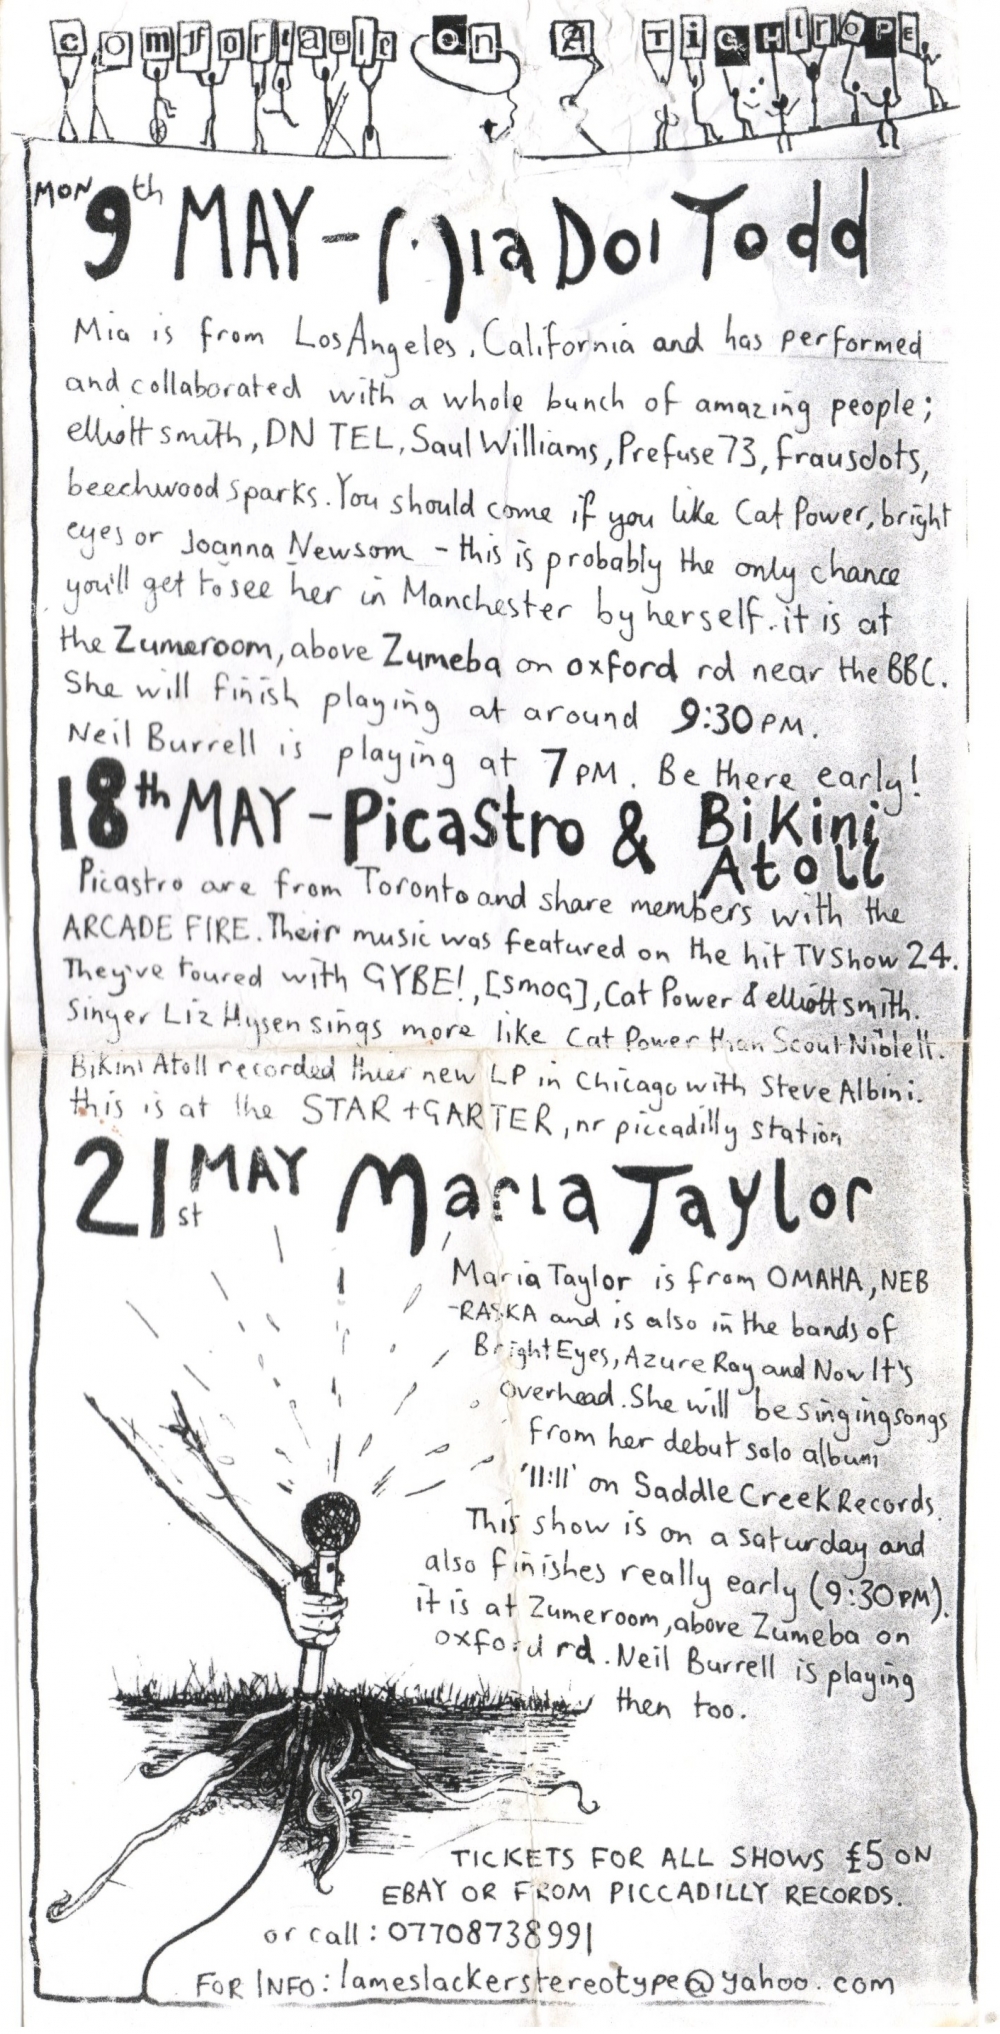 comfortable on A TiGHtrOPE
MON 9th MAY - Mia Doi Todd
Mia is from Los Angeles, California and has performed
and collaborated with a whole bunch of amazing people;
elliott smith, DNTEL, Saul Williams, Prefuse 73, frausdots,
beechwood sparks. You should come if you like Cat Power, bright
eyes or Joanna Newsom - this is probably the only chance
you'll get to see her in Manchester by herself. it is at
the Zumeroom, above Zumeba on oxford rd near the BBC.
She will finish playing at around 9:30PM.
Neil Burrell is playing at 7PM. Be there early!
18th MAY - Picastro & Bikini
Atoll
Picastro are from Toronto and share members with the
ARCADE FIRE. Their music was featured on the hit TV Show 24.
They've toured with GYBE!, [smog], Cat Power & elliott smith.
Singer Liz Hysen sings more like Cat Power than Scout Niblett.
Bikini Atoll recorded thier new LP in Chicago with Steve Albini.
this is at the STAR + GARTER, nr piccadilly station
21st MAY Maria Taylor
Maria Taylor is from OMAHA, NEB
-RASKA and is also in the bands of
Bright Eyes, Azure Ray and Now It's
overhead. She will be singing songs
from her debut solo album
'11:11' on Saddle Creek Records.
This show is on a saturday and
also finishes really early (9:30PM).
it is at Zumeroom, above Zumeba on
oxford rd. Neil Burrell is playing
then too.
TICKETS FOR ALL SHOWS £5 ON
EBAY OR FROM PICCADILLY RECORDS.
or call: 07708738991
FOR INFO: lameslackerstereotype@yahoo.com